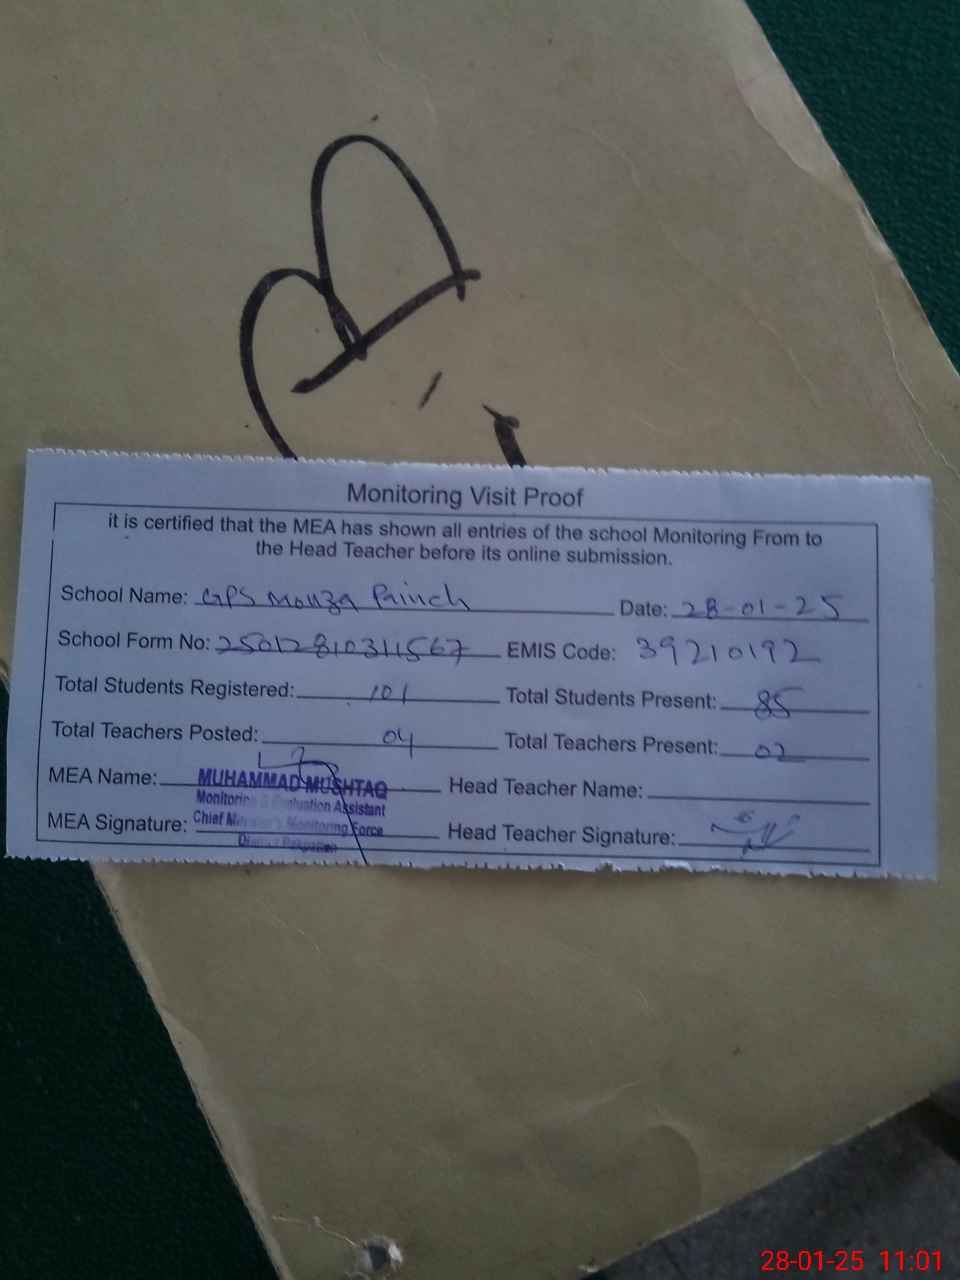 Monitoring Visit Proof
it is certified that the MEA has shown all entries of the school Monitoring From to
the Head Teacher before its online submission.
School Name: GPS Mouza Painch Date: 28-01-25
School Form No: 25012810311567 EMIS Code: 39210192
Total Students Registered: 101 Total Students Present: 85
Total Teachers Posted: 04 Total Teachers Present: 02
MEA Name: MUHAMMAD MUSHTAQ Head Teacher Name:
Monitoring & Evaluation Assistant
MEA Signature: Chief Minister's Monitoring Force Head Teacher Signature:
28-01-25 11:01